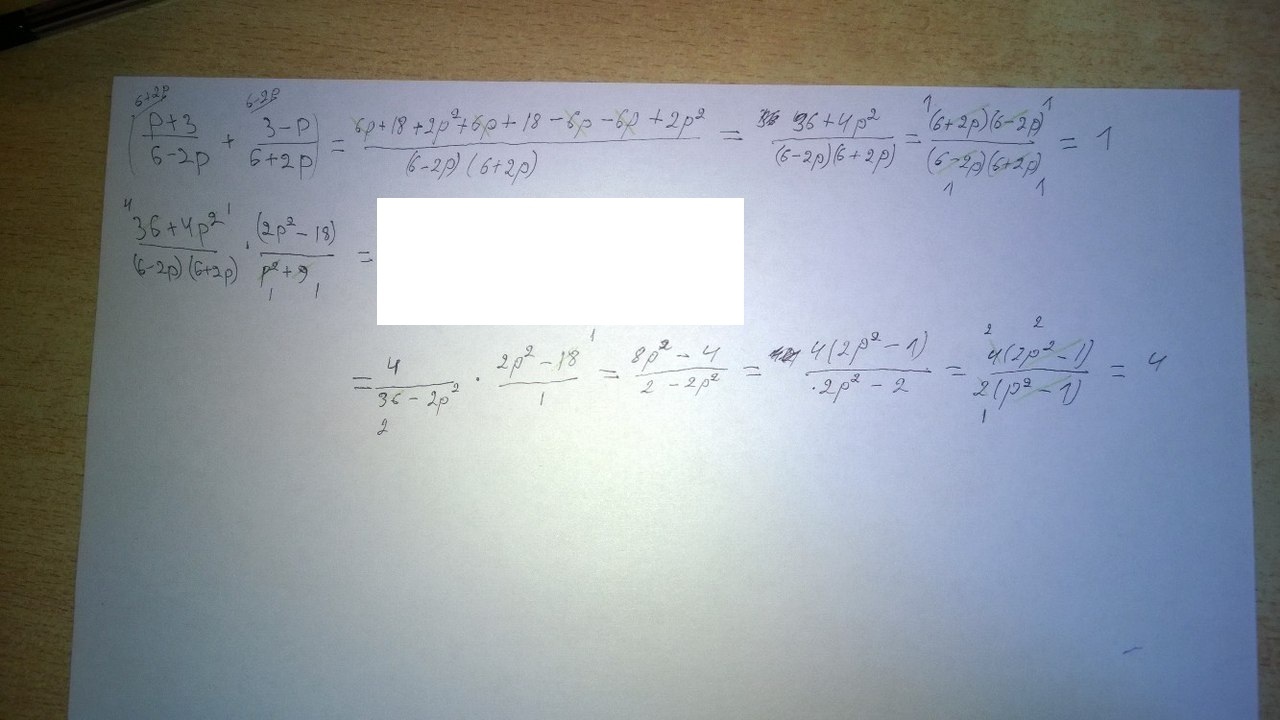 6+2p 6-2p
(p+3/6-2p + 3-p/6+2p) = 6p+18+2p²+6p+18-6p-6p+2p²/(6-2p)(6+2p) = 36+4p²/(6-2p)(6+2p) = 1(6+2p)(6-2p)1/(6-2p)(6+2p) 1 1 = 1
4 36+4p² 1/(6-2p)(6+2p) · (2p²-18)/p²+9 1 1 =
= 4/36-2p² 2 · 2p²-18 1/1 = 8p²-4/2-2p² = 4(2p²-1)/·2p²-2 = 2 2 4(2p²-1)/2(p²-1) 1 = 4